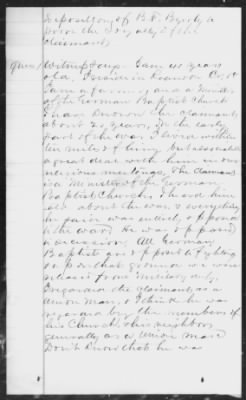 Deposition of B. F. Byerly to
prove the loyalty of the
claimant,
Ques 1 Witness says I am 45 years
old, I reside in Loudon Co, Va
I am a farmer, and a Minister
of the German Baptist Church
I have known the claimant
about 25 years, In the early
part of the war I lived within
ten miles of him, but associated
a great deal with him in our
religious meetings, The claimant
is a Minister of the German
Baptist Church, I heard him
talk about the war, & everything
he said was entirely opposed
to the war. He was opposed
to secession. All German
Baptists are opposed to fighting
on that ground & were
released from military duty,
I regarded the claimant as a
Union man, & I think he was
regarded by the members of
his Church & his neighbors
generally as a Union man
Don't Know that he was